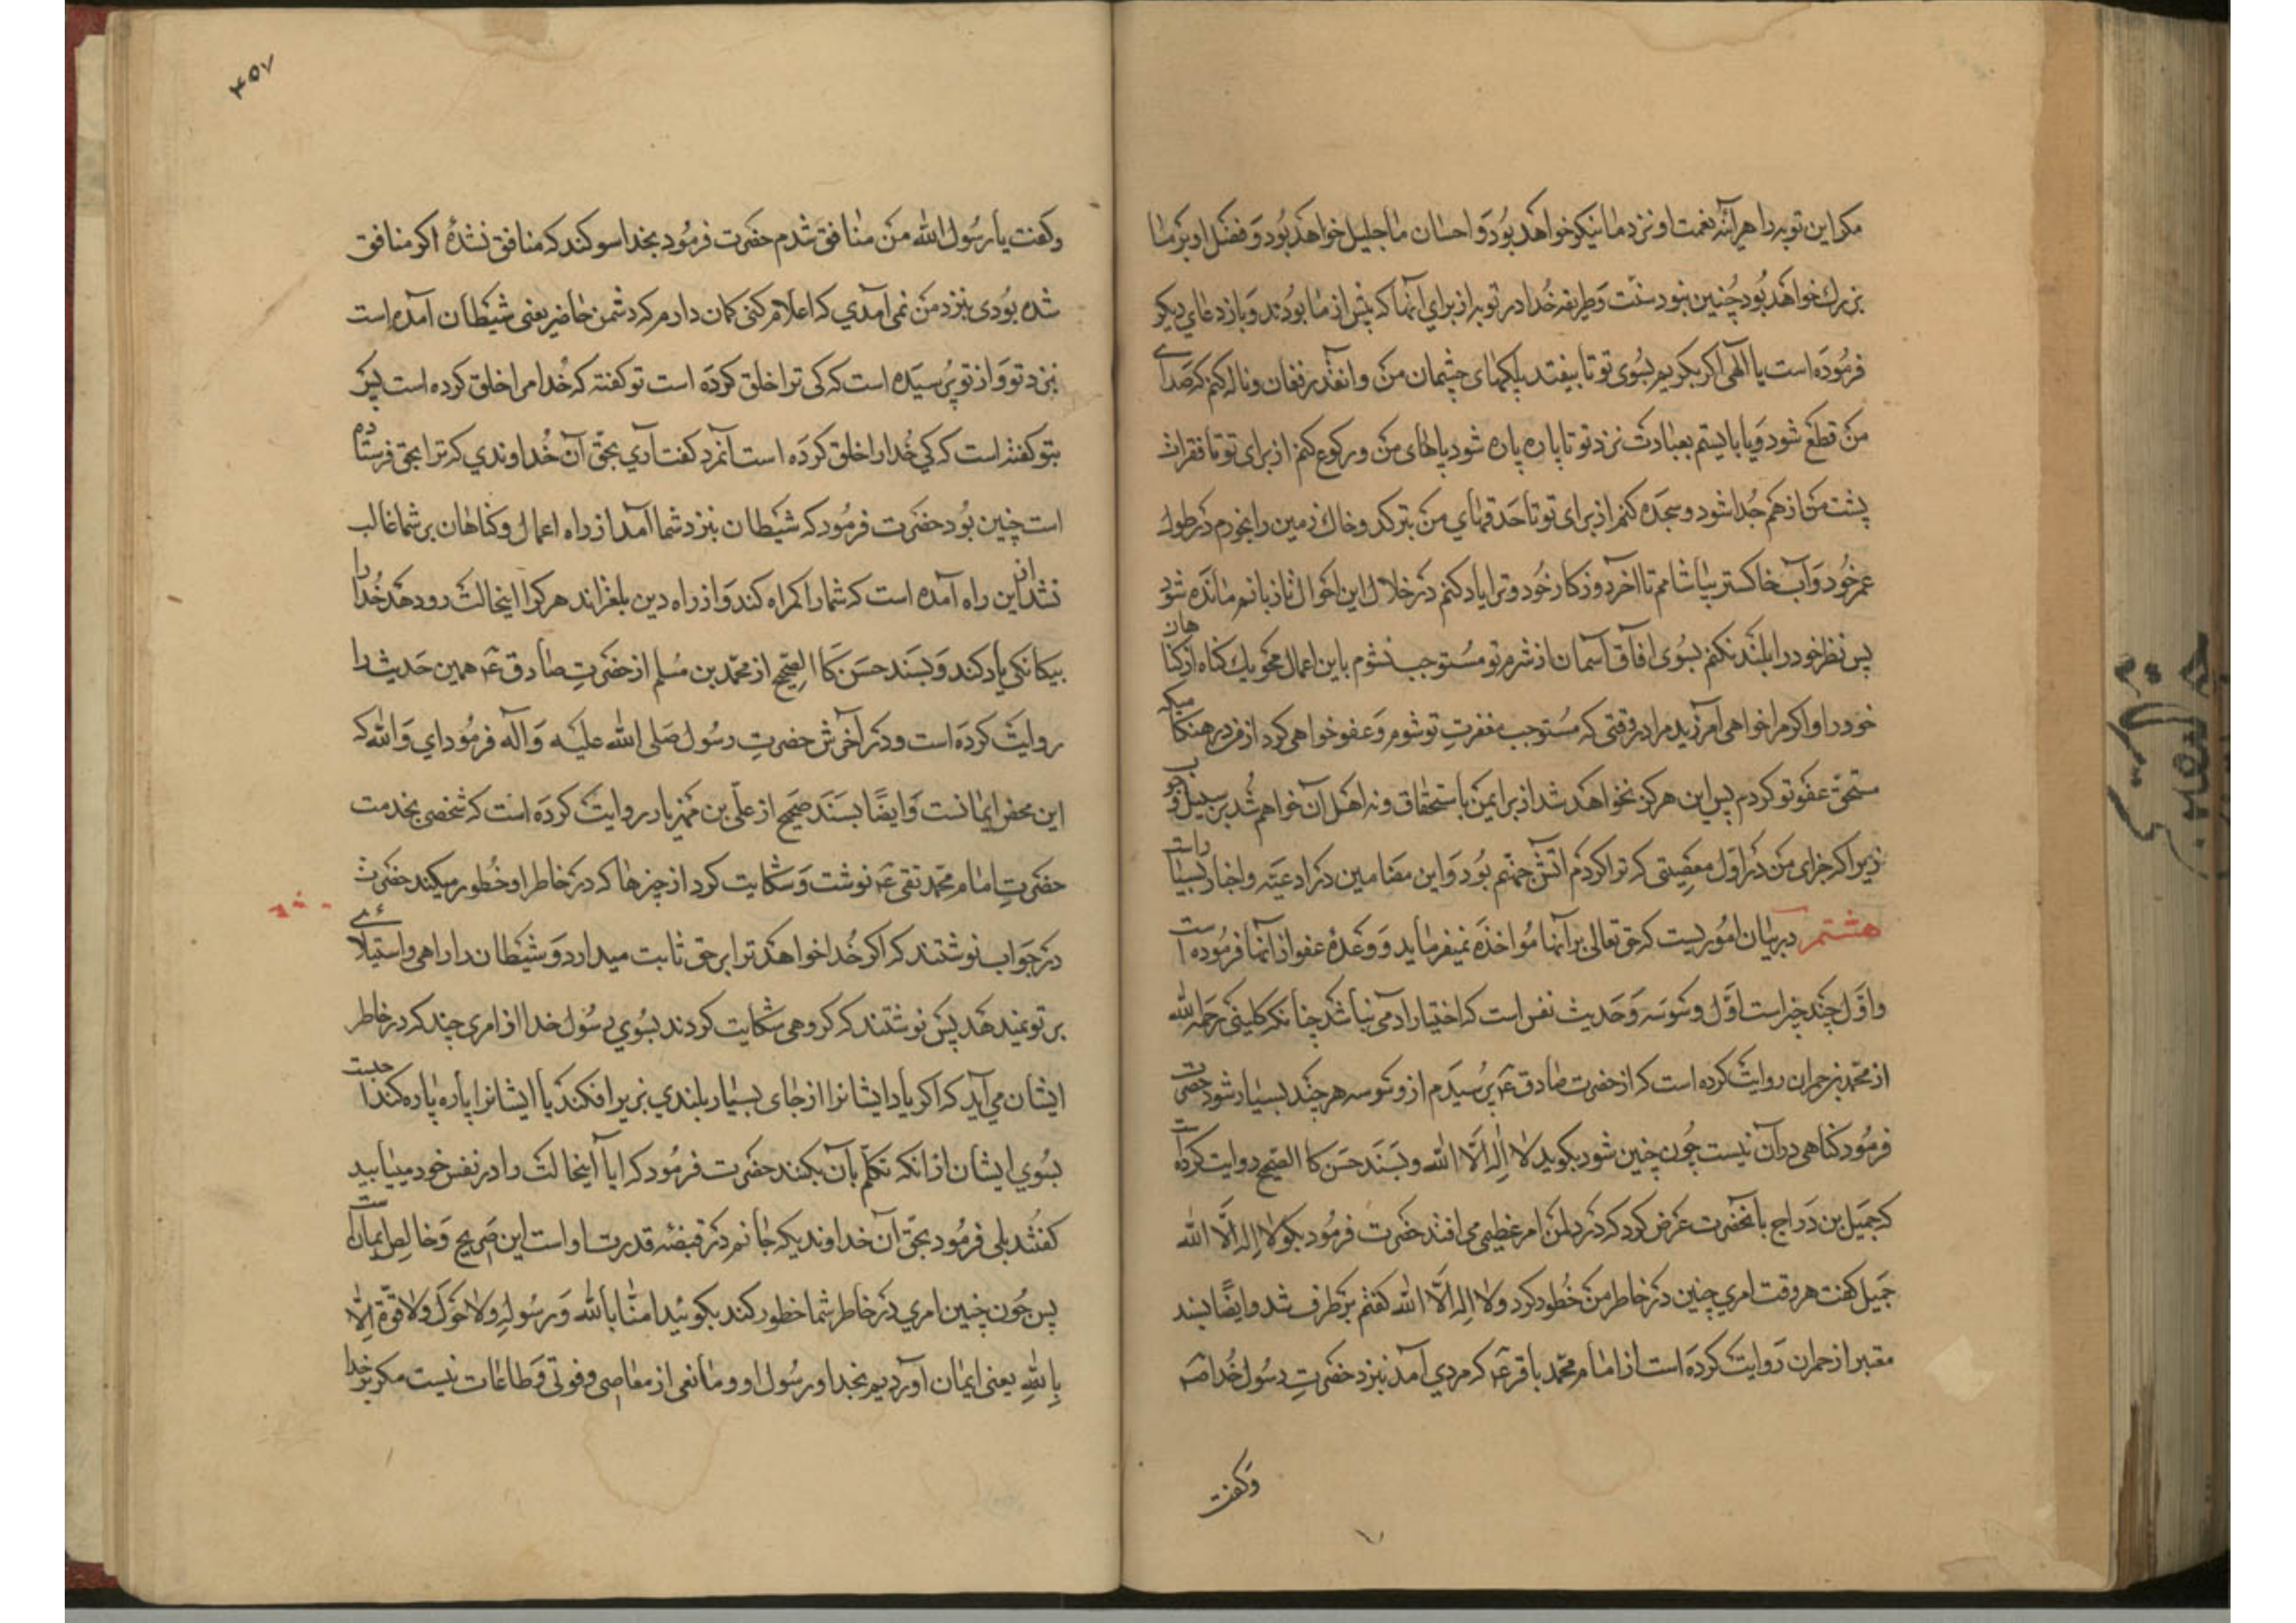 مکر این توبه را هرآینه نعمت او نزد ما نیکو خواهد بود و احسان ما جلیل خواهد بود و فضل او بر ما
بزرك خواهد بود چنین نبود سنّت و طریقه خدا در توبه از برای آنها که پیش از ما بودند و باز دعای دیکر
فرموده است یا الٓهی اکر بکریم بسوی تو تا بیفتد پلکهای چشمان من و انقدر فغان و ناله کنم که صدای
من قطع شود و یا بایستم بعبادت نزد تو تا پاره پاره شود پاهای من و رکوع کنم از برای تو تا فقرات
پشت من از هم جدا شود و سجده کنم از برای تو تا حدقهای من بترکد و خاك زمین را بخورم در طول
عمر خود و آب خاکستر بیاشامم تا آخر روزکار خود و ترا یاد کنم در خلال این احوال تا زبانم مانده شود
پس نظر خود را بلند نکنم بسوی افاق آسمان از شرم تو مستوجب نشوم باین اعمال محو یك کناه از کناهان
خود را و اکر مرا خواهی آمرزید مرا در وقتی که مستوجب مغفرت تو شوم و عفو خواهی کرد از من در هنکامیکه
مستحق عفو تو کردم پس این هرکز نخواهد شد از برای من باستحقاق و نه اهل آن خواهم شد بر سبیل وجوب
زیرا که جزای من در اول معصیتی که ترا کردم آتش جهنّم بود و این مضامین در ادعیه و اخبار بسیار است
هشتم در بیان امور یست که حق تعالی بر آنها مواخذه نمیفرماید و وعدۀ عفو از آنها فرموده است
و اوّل چند چیز است اوّل وسوسه و حدیث نفس است که اختیار آدمی نباشد چنانکه کلینی رحمه الله
از محمّد بن حمران روایت کرده است که از حضرت صادق ع پرسیدم از وسوسه هر چند بسیار شود حضرت
فرمود کناهی در آن نیست چون چنین شود بکوید لا اله الّا الله و بسند حسن کا الصحیح روایت کرده است
که جمیل بن دراج بآنحضرت عرض کرد که در دل من امر عظیمی می افتد حضرت فرمود بکو لا اله الّا الله
جمیل کفت هر وقت امری چنین در خاطر من خطور کرد و لا اله الّا الله کفتم بر طرف شد و ایضًا بسند
معتبر از حمران روایت کرده است از امام محمّد باقر ع که مردی آمد بنزد حضرت رسول خدا ص
وکفت
۴۵۷
وکفت یا رسول الله من منافق شدم حضرت فرمود بخدا سوکند که منافق نشدۀ اکر منافق
شده بودی بنزد من نمی آمدی که اعلام کنی کمان دارم که دشمن حاضر یعنی شیطان آمده است
بنزد تو و از تو پرسیده است که کی ترا خلق کرده است تو کفتۀ که خدا مرا خلق کرده است پس
بتو کفته است که کی خدا را خلق کرده است آنمرد کفت آری بحقّ آن خداوندی که ترا بحق فرستاده
است چنین بود حضرت فرمود که شیطان بنزد شما آمد از راه اعمال و کناهان بر شما غالب
نشد از این راه آمده است که شما را کمراه کند و از راه دین بلغزاند هر کرا اینحالت رو دهد خدا را
بیکانکی یاد کند و بسند حسن کا الصحیح از محمّد بن مسلم از حضرت صادق ع همین حدیث را
روایت کرده است و در آخرش حضرت رسول صلی الله علیه و آله فرمود ای و الله که
این محض ایمانست و ایضًا بسند صحیح از علی بن مهزیار روایت کرده است که شخصی بخدمت
حضرت امام محمّد تقی ع نوشت و شکایت کرد از چیزها که در خاطر او خطور میکند حضرت
در جواب نوشتند که اکر خدا خواهد ترا بر حق ثابت میدارد و شیطان را راهی و استیلائی
بر تو نمیدهد پس نوشتند که کروهی شکایت کردند بسوی رسول خدا از امری چند که در خاطر
ایشان می آید که اکر باد ایشانرا از جای بسیار بلندی بزیر افکند یا ایشانرا پاره پاره کند احبست
بسوی ایشان از انکه تکلّم بآن بکنند حضرت فرمود که ایا اینحالت را در نفس خود مییابید
کفتند بلی فرمود بحقّ آن خداوندیکه جانم در قبضه قدرت اوست این صریح و خالص ایمان است
پس چون چنین امری در خاطر شما خطور کند بکوئید امنّا بالله و رسوله ولا حول ولا قوّة الّا
بالله یعنی ایمان آوردیم بخدا و رسول او و مانعی از معاصی و قوتی و طاعات نیست مکر بر خدا